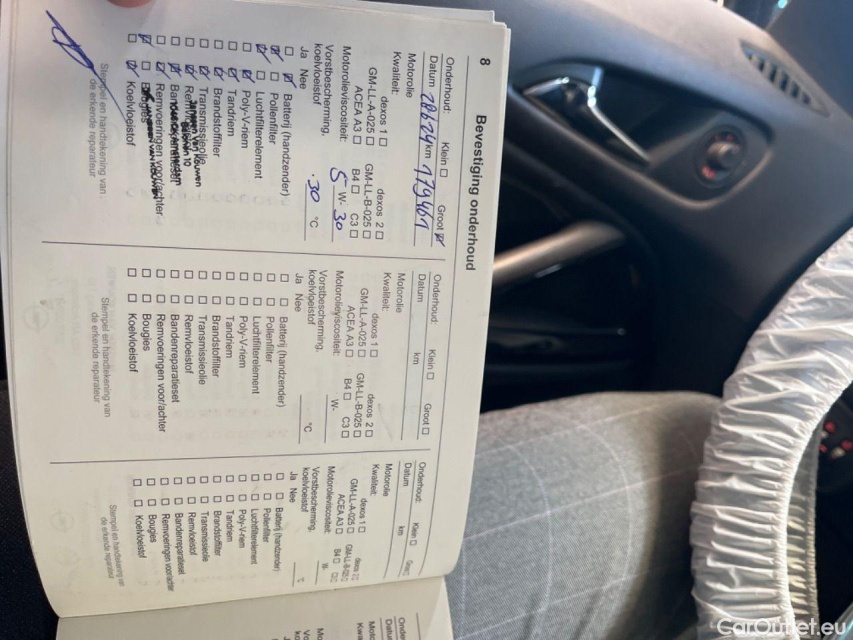 8
Bevestiging onderhoud
Onderhoud: Klein ☐ Groot ☑
Datum 28624 km 179461
Motorolie
Kwaliteit:
dexos 1 ☐ dexos 2 ☐
GM-LL-A-025 ☐ GM-LL-B-025 ☐
ACEA A3 ☐ B4 ☐ C3 ☐
Motorolieviscositeit: 5 W- 30
Vorstbescherming,
koelvloeistof -30 °C
Ja Nee
Batterij (handzender)
Pollenfilter
Luchtfilterelement
Poly-V-riem
Tandriem
Brandstoffilter
Transmissieolie
Remvloeistof
Bandenreparatieset
Remvoeringen voor/achter
Bougies
Koelvloeistof
Stempel en handtekening van
de erkende reparateur
Onderhoud: Klein ☐ Groot ☐
Datum km
Motorolie
Kwaliteit:
dexos 1 ☐ dexos 2 ☐
GM-LL-A-025 ☐ GM-LL-B-025 ☐
ACEA A3 ☐ B4 ☐ C3 ☐
Motorolieviscositeit: W-
Vorstbescherming,
koelvloeistof °C
Ja Nee
☐ ☐ Batterij (handzender)
☐ ☐ Pollenfilter
☐ ☐ Luchtfilterelement
☐ ☐ Poly-V-riem
☐ ☐ Tandriem
☐ ☐ Brandstoffilter
☐ ☐ Transmissieolie
☐ ☐ Remvloeistof
☐ ☐ Bandenreparatieset
☐ ☐ Remvoeringen voor/achter
☐ ☐ Bougies
☐ ☐ Koelvloeistof
Stempel en handtekening van
de erkende reparateur
Onderhoud: Klein ☐ Groot ☐
Datum km
Motorolie
Kwaliteit:
dexos 1 ☐ dexos 2 ☐
GM-LL-A-025 ☐ GM-LL-B-025 ☐
ACEA A3 ☐ B4 ☐
Motorolieviscositeit: W-
Vorstbescherming,
koelvloeistof °C
Ja Nee
☐ ☐ Batterij (handzender)
☐ ☐ Pollenfilter
☐ ☐ Luchtfilterelement
☐ ☐ Poly-V-riem
☐ ☐ Tandriem
☐ ☐ Brandstoffilter
☐ ☐ Transmissieolie
☐ ☐ Remvloeistof
☐ ☐ Bandenreparatieset
☐ ☐ Remvoeringen voor/achter
☐ ☐ Bougies
☐ ☐ Koelvloeistof
Stempel en handtekening van
de erkende reparateur
CarOutlet.eu